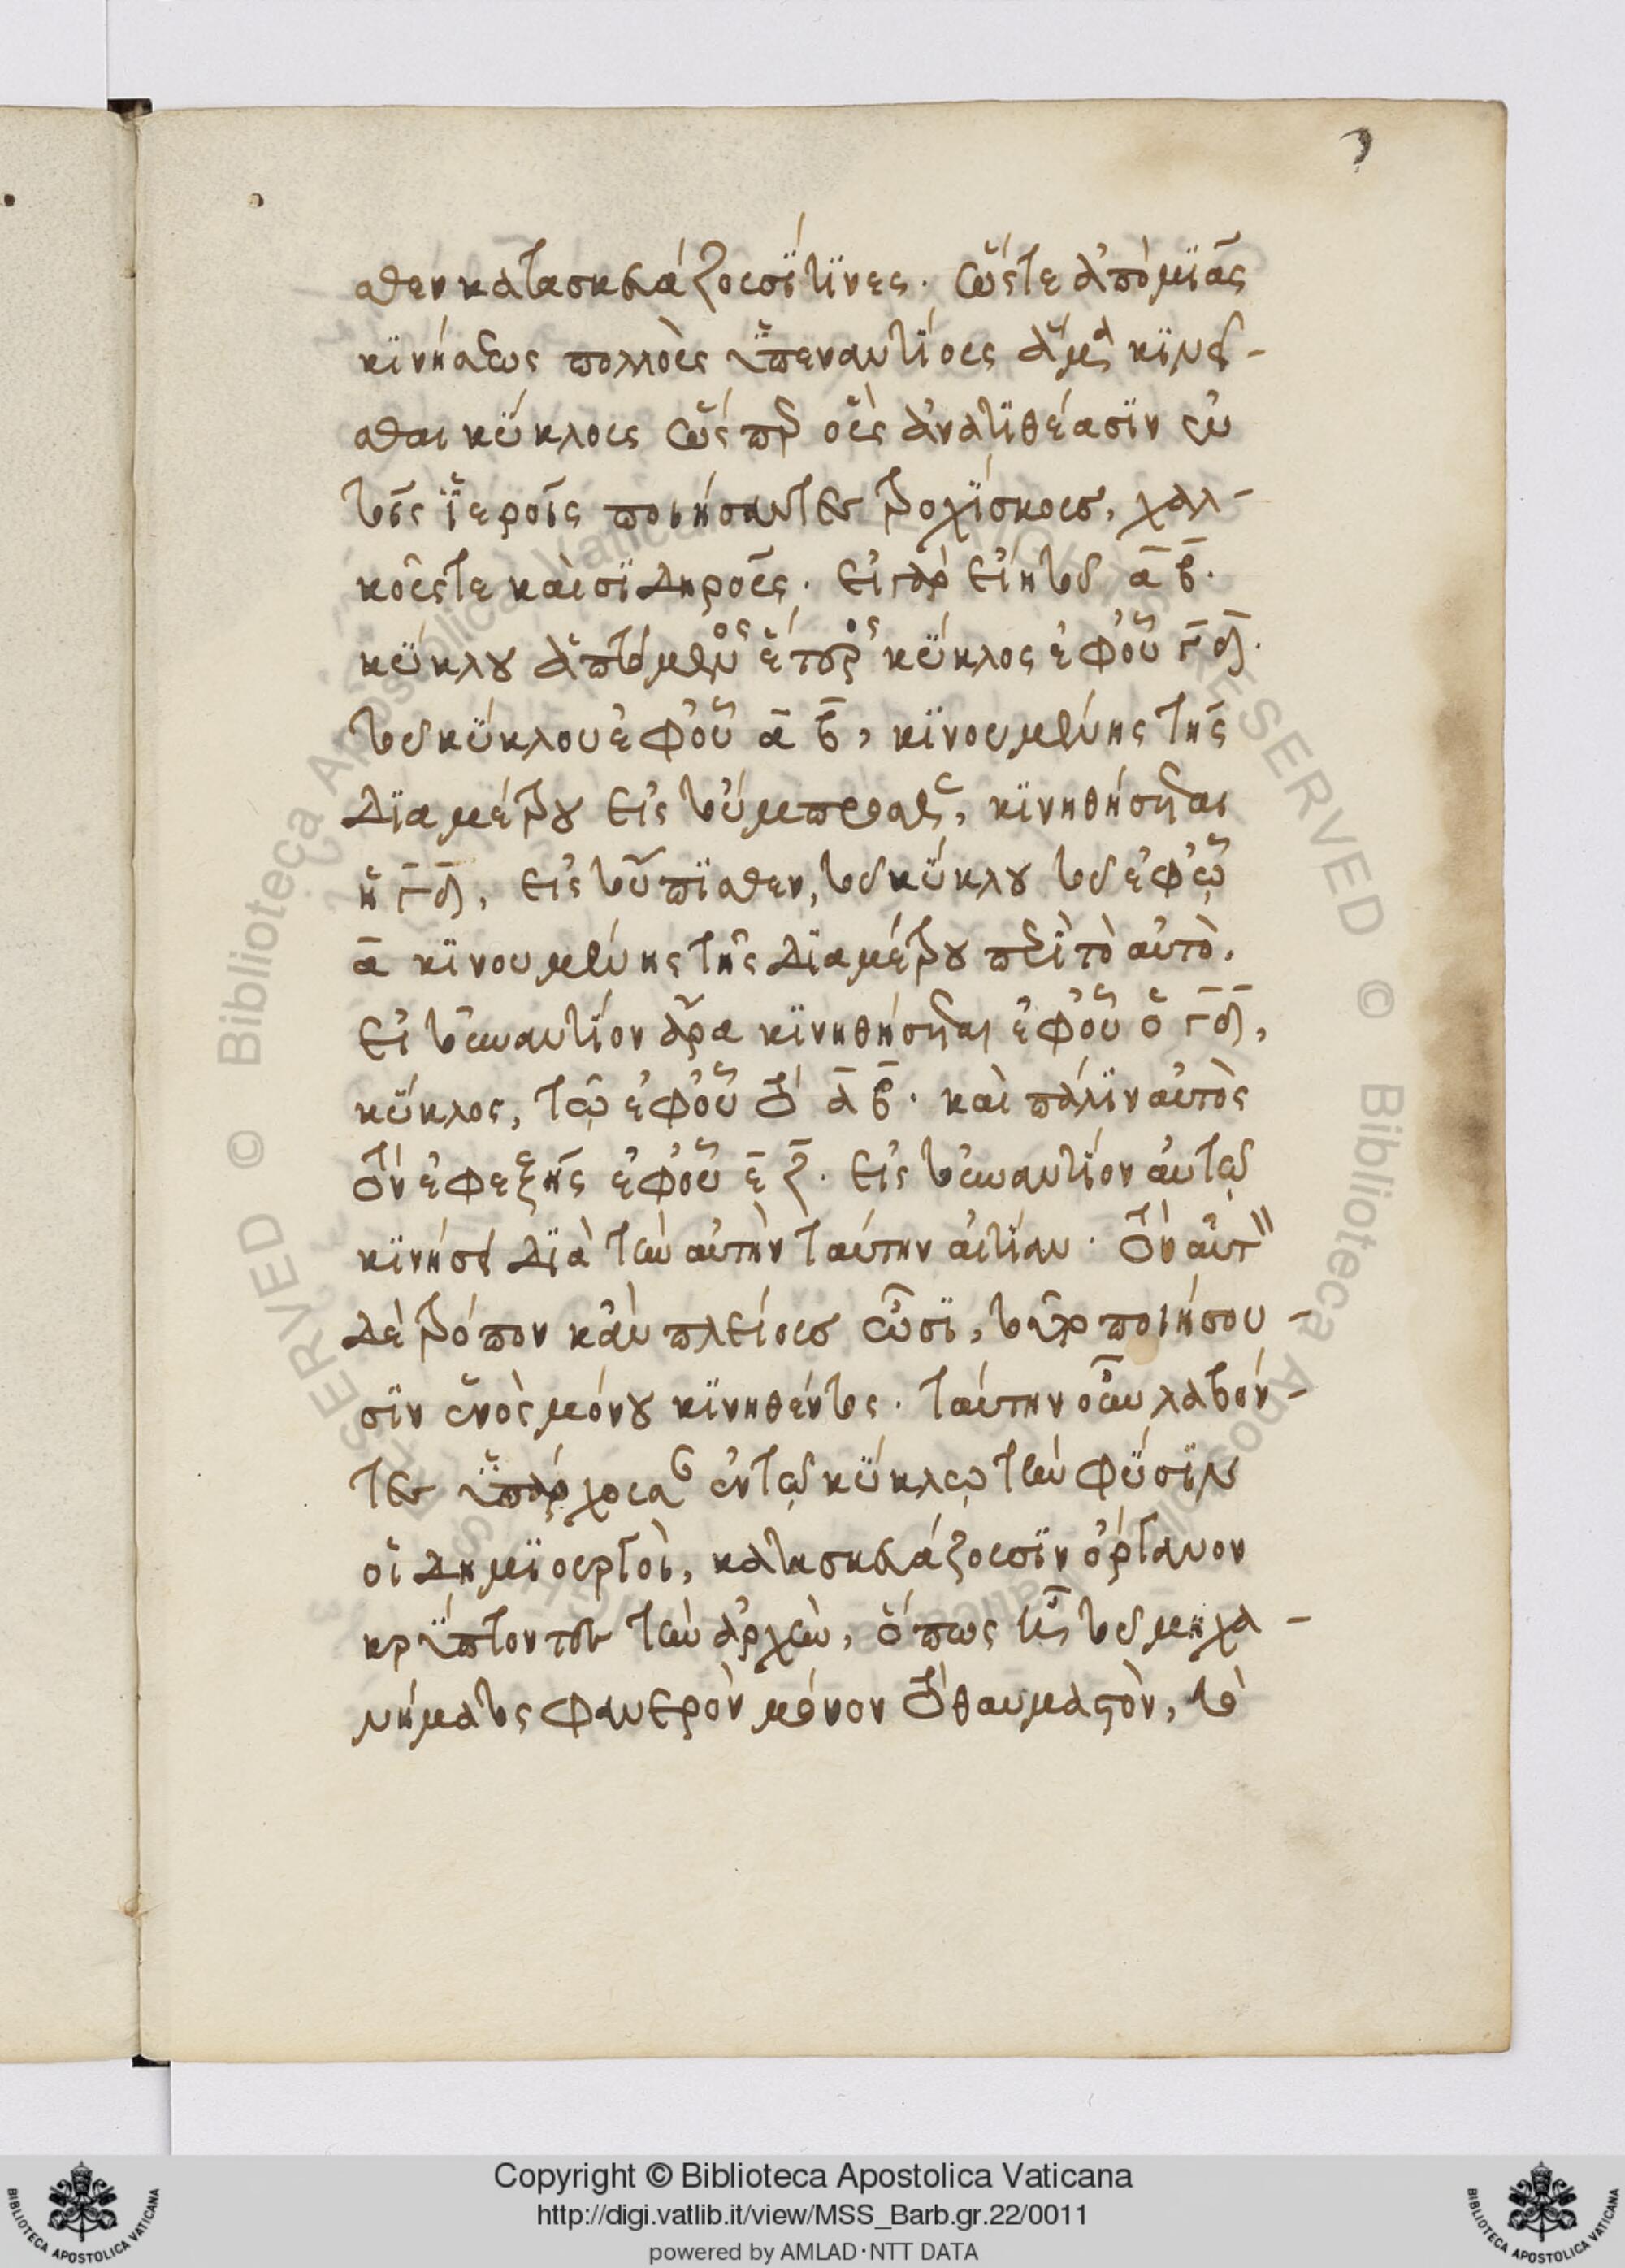 3
σθεν κατασκευάζουσί τινες. ὥστε ἀπὸ μιᾶς
κινήσεως πολλοὺς ὑπεναντίους ἅμα κινεῖ-
σθαι κύκλους ὥσπερ οὓς ἀνατιθέασιν ἐν
τοῖς ἱεροῖς ποιήσαντες τροχίσκους, χαλ-
κοῦς τε καὶ σιδηροῦς. εἰ γὰρ εἴη τοῦ α̅ β̅.
κύκλου ἁπτόμενος ἕτερος κύκλος ἐφ' οὗ γ̅ δ̅.
τοῦ κύκλου ἐφ' οὗ α̅ β̅, κινουμένης τῆς
διαμέτρου εἰς τοὔμπροσθεν, κινηθήσεται
ἡ γ̅ δ̅, εἰς τοὔπισθεν, τοῦ κύκλου τοῦ ἐφ' ᾧ
α̅ κινουμένης τῆς διαμέτρου περὶ τὸ αὐτό.
εἰ τοὐναντίον ἄρα κινηθήσεται ἐφ' οὗ ὁ γ̅ δ̅,
κύκλος, τῷ ἐφ' οὗ τὸ α̅ β̅. καὶ πάλιν αὐτὸς
τὸν ἐφεξῆς ἐφ' οὗ ε̅ ζ̅. εἰς τοὐναντίον αὑτῷ
κινήσει διὰ τὴν αὐτὴν ταύτην αἰτίαν. τὸν αὐτὸν
δὲ τρόπον κἂν πλείους ὦσι, τοῦτο ποιήσου-
σιν ἑνὸς μόνου κινηθέντος. ταύτην οὖν λαβόν-
τες ὑπάρχουσαν ἐν τῷ κύκλῳ τὴν φύσιν
οἱ δημιουργοὶ, κατασκευάζουσιν ὄργανον
κρύπτοντες τὴν ἀρχὴν, ὅπως ᾖ τοῦ μηχα-
νήματος φανερὸν μόνον τὸ θαυμαστὸν, τὸ
Copyright © Biblioteca Apostolica Vaticana
http://digi.vatlib.it/view/MSS_Barb.gr.22/0011
powered by AMLAD·NTT DATA